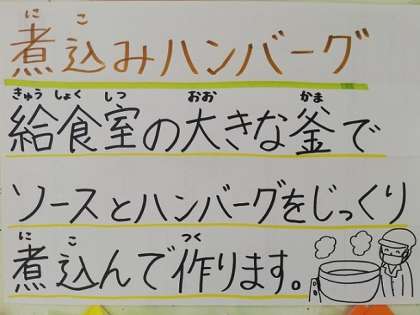 にこ
煮込みハンバーグ
きゅうしょくしつ おお かま
給食室の大きな釜で
ソースとハンバーグをじっくり
にこ つく
煮込んで作ります。